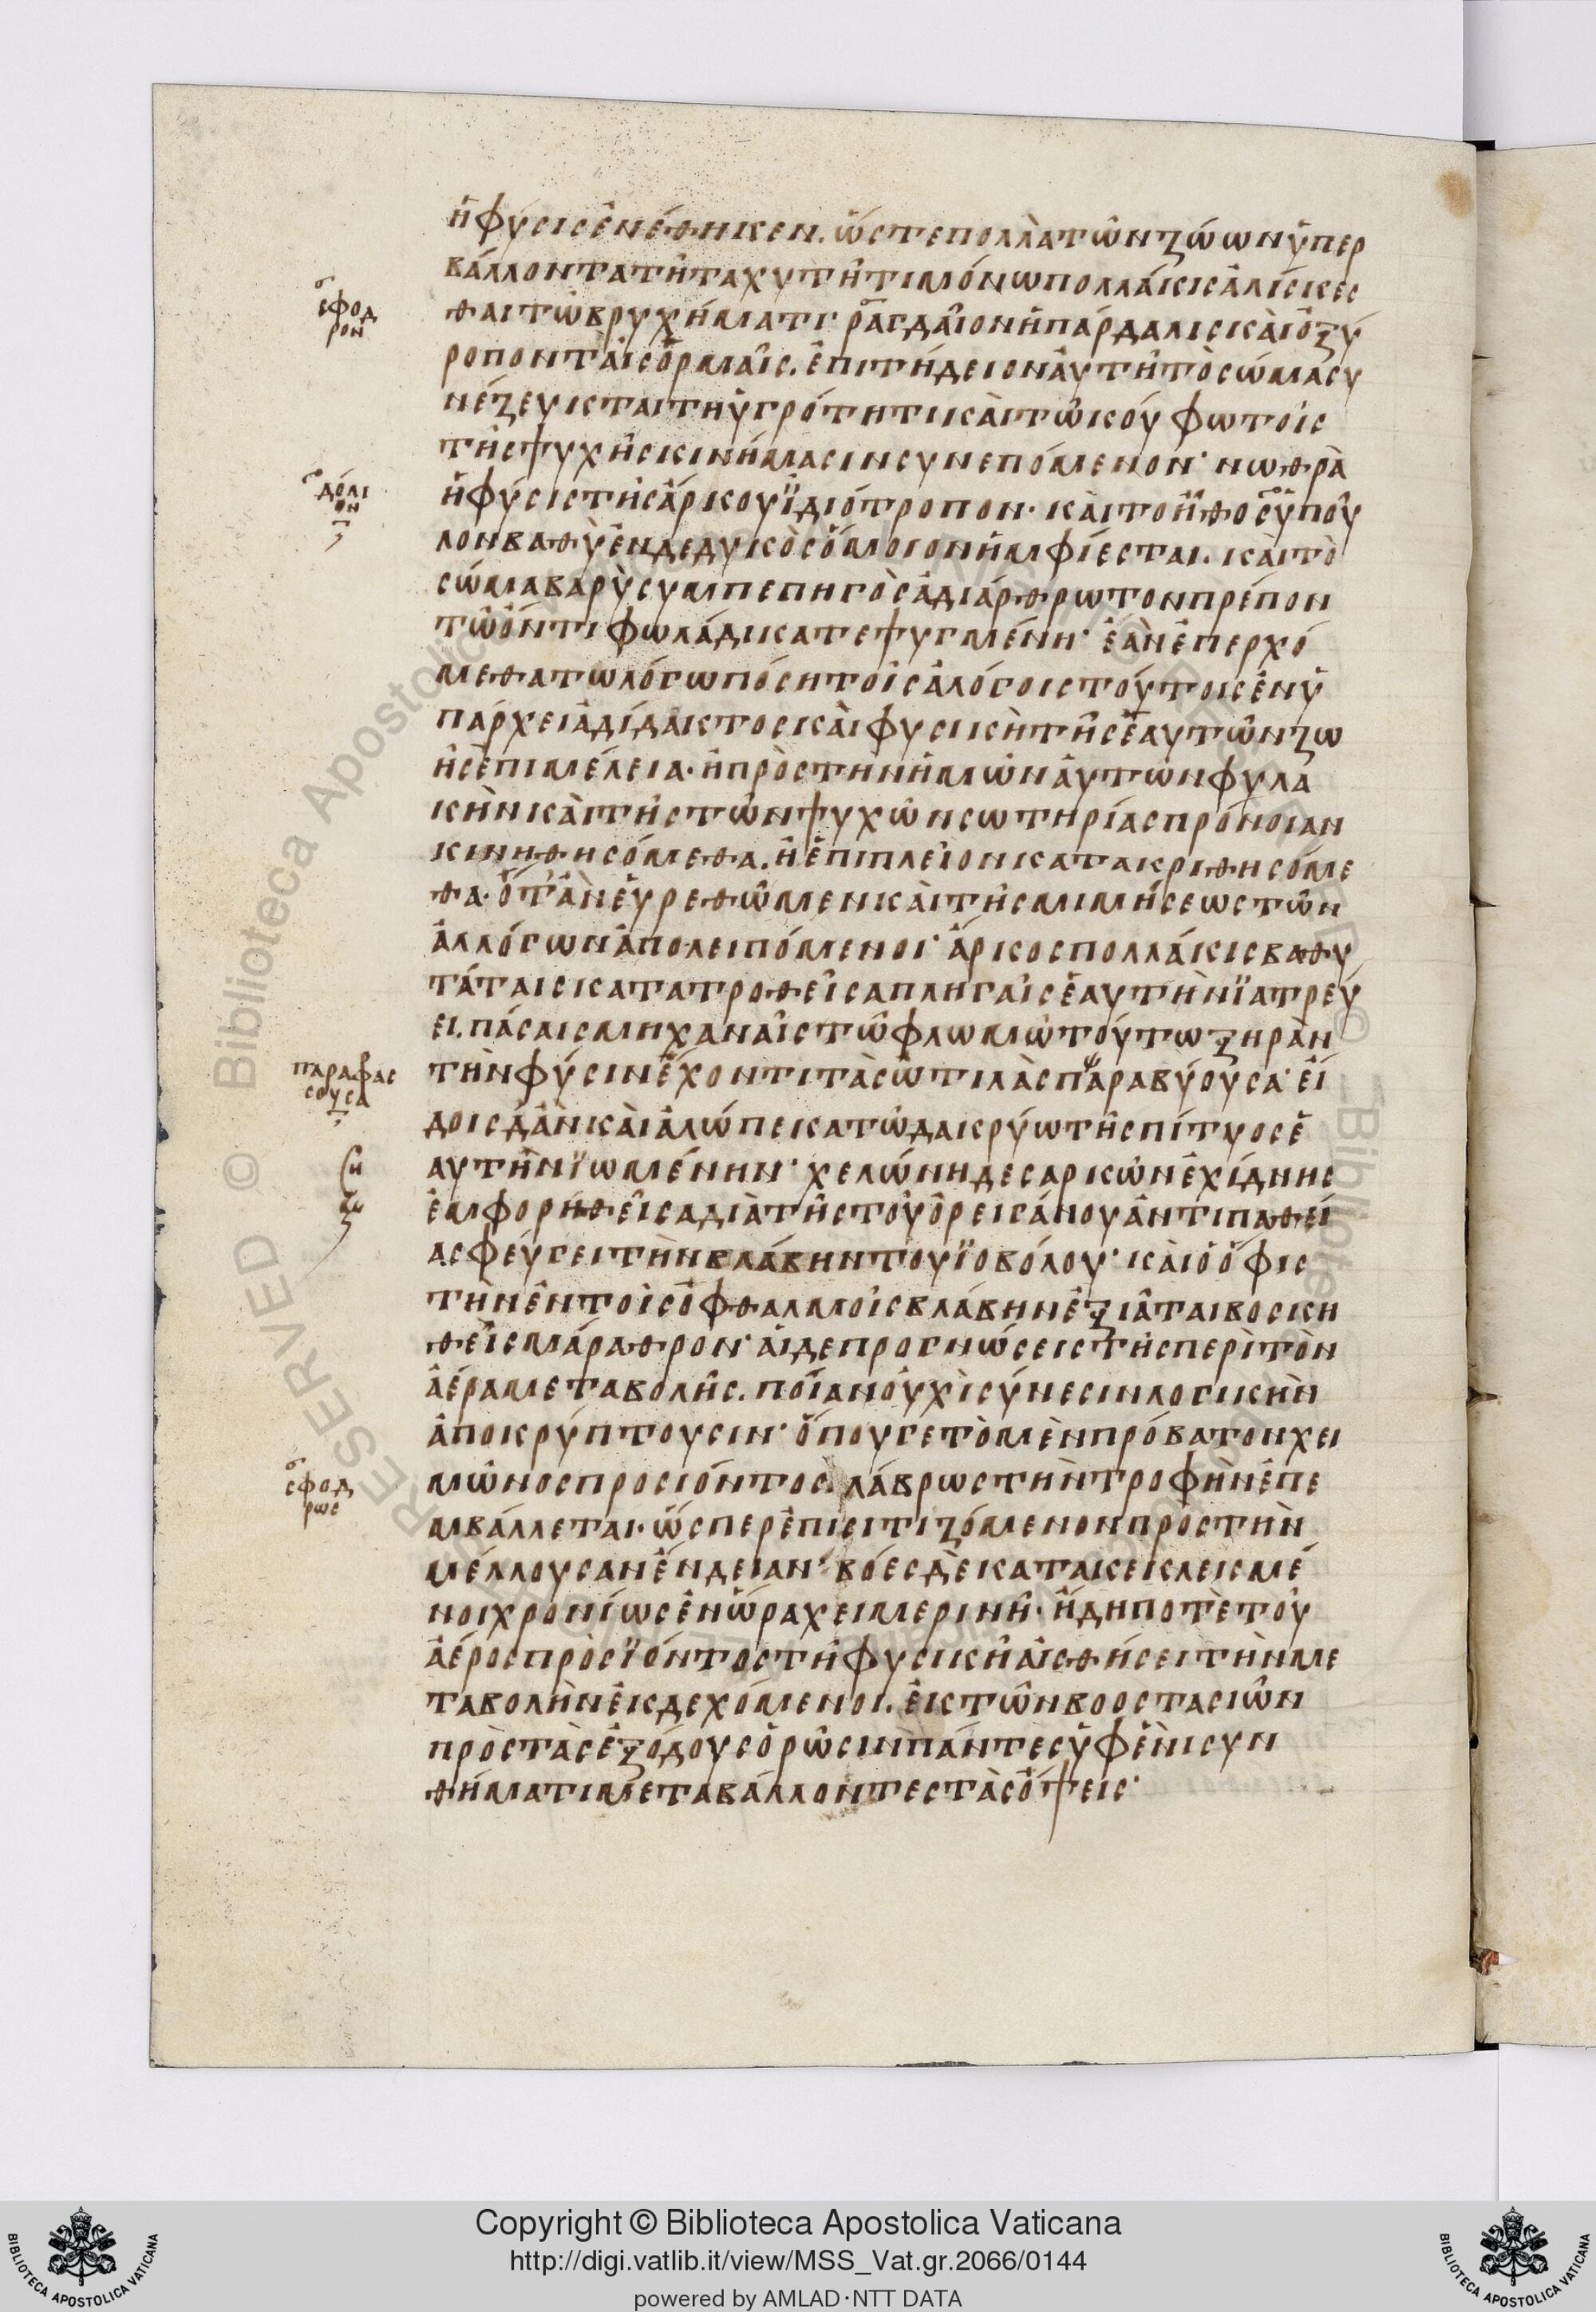 ἡ φύσις ἐνέθηκεν. ὥστε πολλὰ τῶν ζώων ὑπερ
βάλλοντα τῆ ταχυτῆτι μόνω πολλάκις ἁλίσκεσ
θαι τῶ βρυχήματι· ῥαγδαῖον ἡ πάρδαλις καὶ ὀξύ
ροπον ταῖς ὁρμαῖς. ἐπιτήδειον αὐτῆ τὸ σώμα συ
νέζευκται τη ὑγρότητι καὶ τῶ κούφω τοῖς
τῆς ψυχῆς κινήμασιν συνεπόμενον· νωθρὰ
ἡ φύσις τῆς ἄρκου ϊδιότροπον· καὶ το ἦθος ὕπου
λον βαθὺ ἐνδεδυκὸς ὅμοιον ἠμφίεσται. καὶ τὸ
σώμα βαρὺ συμπεπηγὸς ἀδιάρθρωτον πρέπον
τῶ ὄντι φωλάδι κατεψυγμένη· ἐὰν ἐπερχό
μεθα τω λόγω πόση τοῖς ἀλόγοις τούτοις ἐνυ
πάρχει ἀδίδακτος και φυσικὴ τῆς ἑαυτῶν ζω
ῆς ἐπιμέλεια. ἢ πρὸς την ἡμῶν αὐτῶν φυλα
κὴν καὶ τῆς τῶν ψυχῶν σωτηρίας προνοιαν
κινηθησόμεθα. ἢ ἐπιπλεῖον κατακριθησόμε
θα. ὅτ' ἂν εὑρεθῶμεν καὶ τῆς μιμήσεως τῶν
ἀλλόγων ἀπολειπόμενοι· ἄρκος πολλάκις βαθυ
τάταις κατατροθεῖσα πληγαῖς ἑαυτὴν ϊατρεύ
ει. πάσαις μηχαναῖς τῶ φλωμῶ τούτω ξηρὰν
τὴν φύσιν ἔχοντι τὰς ὠτιλὰς παραβύουσα· εἴ
δοις δ' ἂν καὶ ἀλώπεκα τῶ δακρύω τῆς πίτυος ἑ
αυτὴν ϊωμένην· χελώνη δε σαρκῶν ἐχίδνης
ἐμφορηθεῖσα διὰ τῆς τοῦ ὀρειγάνου ἀντιπαθεί
ας φεύγει τὴν βλάβην του ϊοβόλου· καὶ ὁ ὄφις
τὴν ἐν τοῖς ὀφθαλμοῖς βλάβην ἐξιᾶται βοσκη
θεὶς μάραθρον· ἁι δε προγνώσεις τῆς περὶ τὸν
ἀέρα μεταβολῆς. ποίαν οὐχὶ σύνεσιν λογικὴν
ἀποκρύπτουσιν· ὅπου γε τὸ μὲν πρόβατον χει
μῶνος προσιόντος. λάβρως τὴν τροφὴν ἐπε
μβάλλεται. ὥσπερ ἐπισιτιζόμενον πρὸς τὴν
μέλλουσαν ἔνδειαν· βόες δὲ κατακεκλεισμέ
νοι χρονίως ἐν ὥρα χειμερινῆ. ἤδη ποτὲ τοῦ
ἀέρος πρὸς ϊόντος τῆ φυσικῆ αἰσθήσει τὴν με
ταβολὴν ἐκδεχόμενοι. ἐκ τῶν βοοστασιῶν
πρὸς τὰς ἐξόδους ὁρῶσιν πάντες ὑφ ἑνὶ συν
θήματι μεταβάλλοντες τὰς ὄψεις·
σφοδ
ρον
δόλι
ον
παραφας
σουσα
ση
σφοδ
ρως
RESERVED © Biblioteca Apostolica
Copyright © Biblioteca Apostolica Vaticana
http://digi.vatlib.it/view/MSS_Vat.gr.2066/0144
powered by AMLAD·NTT DATA
BIBLIOTECA APOSTOLICA VATICANA
BIBLIOTECA APOSTOLICA VATICANA